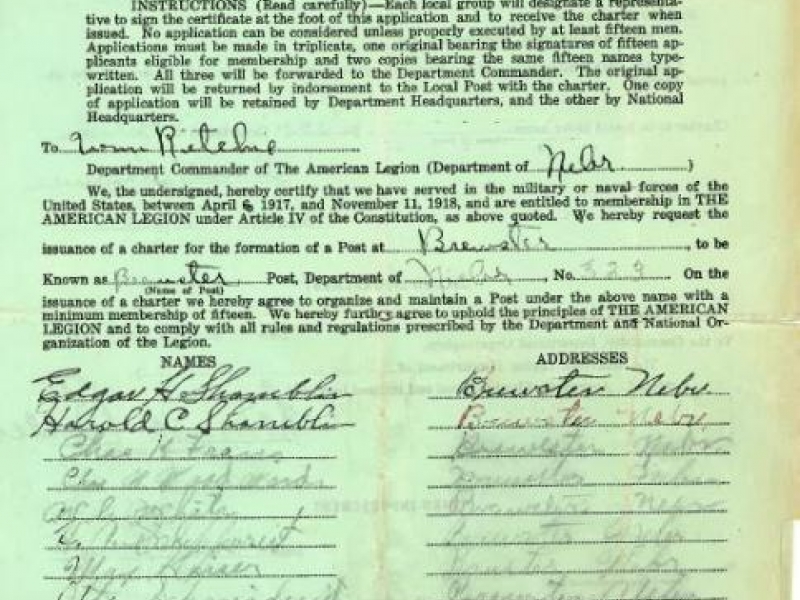 INSTRUCTIONS (Read carefully)—Each local group will designate a representa-
tive to sign the certificate at the foot of this application and to receive the charter when
issued. No application can be considered unless properly executed by at least fifteen men.
Applications must be made in triplicate, one original bearing the signatures of fifteen ap-
plicants eligible for membership and two copies bearing the same fifteen names type-
written. All three will be forwarded to the Department Commander. The original ap-
plication will be returned by indorsement to the Local Post with the charter. One copy
of application will be retained by Department Headquarters, and the other by National
Headquarters.
To Ritchie
Department Commander of The American Legion (Department of Nebr. )
We, the undersigned, hereby certify that we have served in the military or naval forces of the
United States, between April 6 1917, and November 11, 1918, and are entitled to membership in THE
AMERICAN LEGION under Article IV of the Constitution, as above quoted. We hereby request the
issuance of a charter for the formation of a Post at Brewster, to be
Known as Brewster Post, Department of Nebr, No. 323 On the
(Name of Post)
issuance of a charter we hereby agree to organize and maintain a Post under the above name with a
minimum membership of fifteen. We hereby further agree to uphold the principles of THE AMERICAN
LEGION and to comply with all rules and regulations prescribed by the Department and National Or-
ganization of the Legion.
NAMES ADDRESSES
Edgar H. Shamblin Brewster Nebr.
Harold C Shamblin Brewster Nebr.
Chas H Brewster Nebr
Brewster Nebr